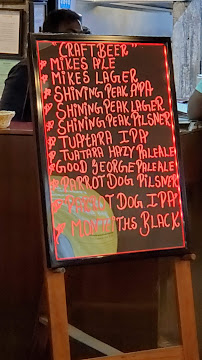 "CRAFT BEER"
MIKES ALE
MIKES LAGER
SHINING PEAK APA
SHINING PEAK LAGER
SHINING PEAK PILSNER
TUATARA IPA
TUATARA HAZY PALE ALE
GOOD GEORGE PALE ALE
PARROT DOG PILSNER
PARROT DOG IPA
MONTEITHS BLACK